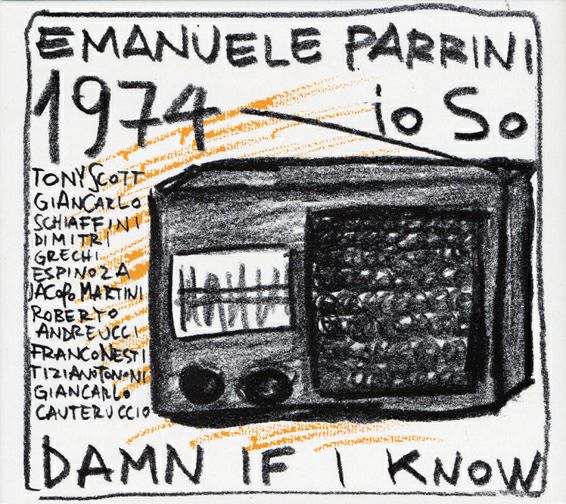 EMANUELE PARRINI
1974
io So
TONY SCOTT
GIANCARLO
SCHIAFFINI
DIMITRI
GRECHI
ESPINOZA
JACOPO MARTINI
ROBERTO
ANDREUCCI
FRANCO NESTI
TIZIANO TONONI
GIANCARLO
CAUTERUCCIO
DAMN IF I KNOW